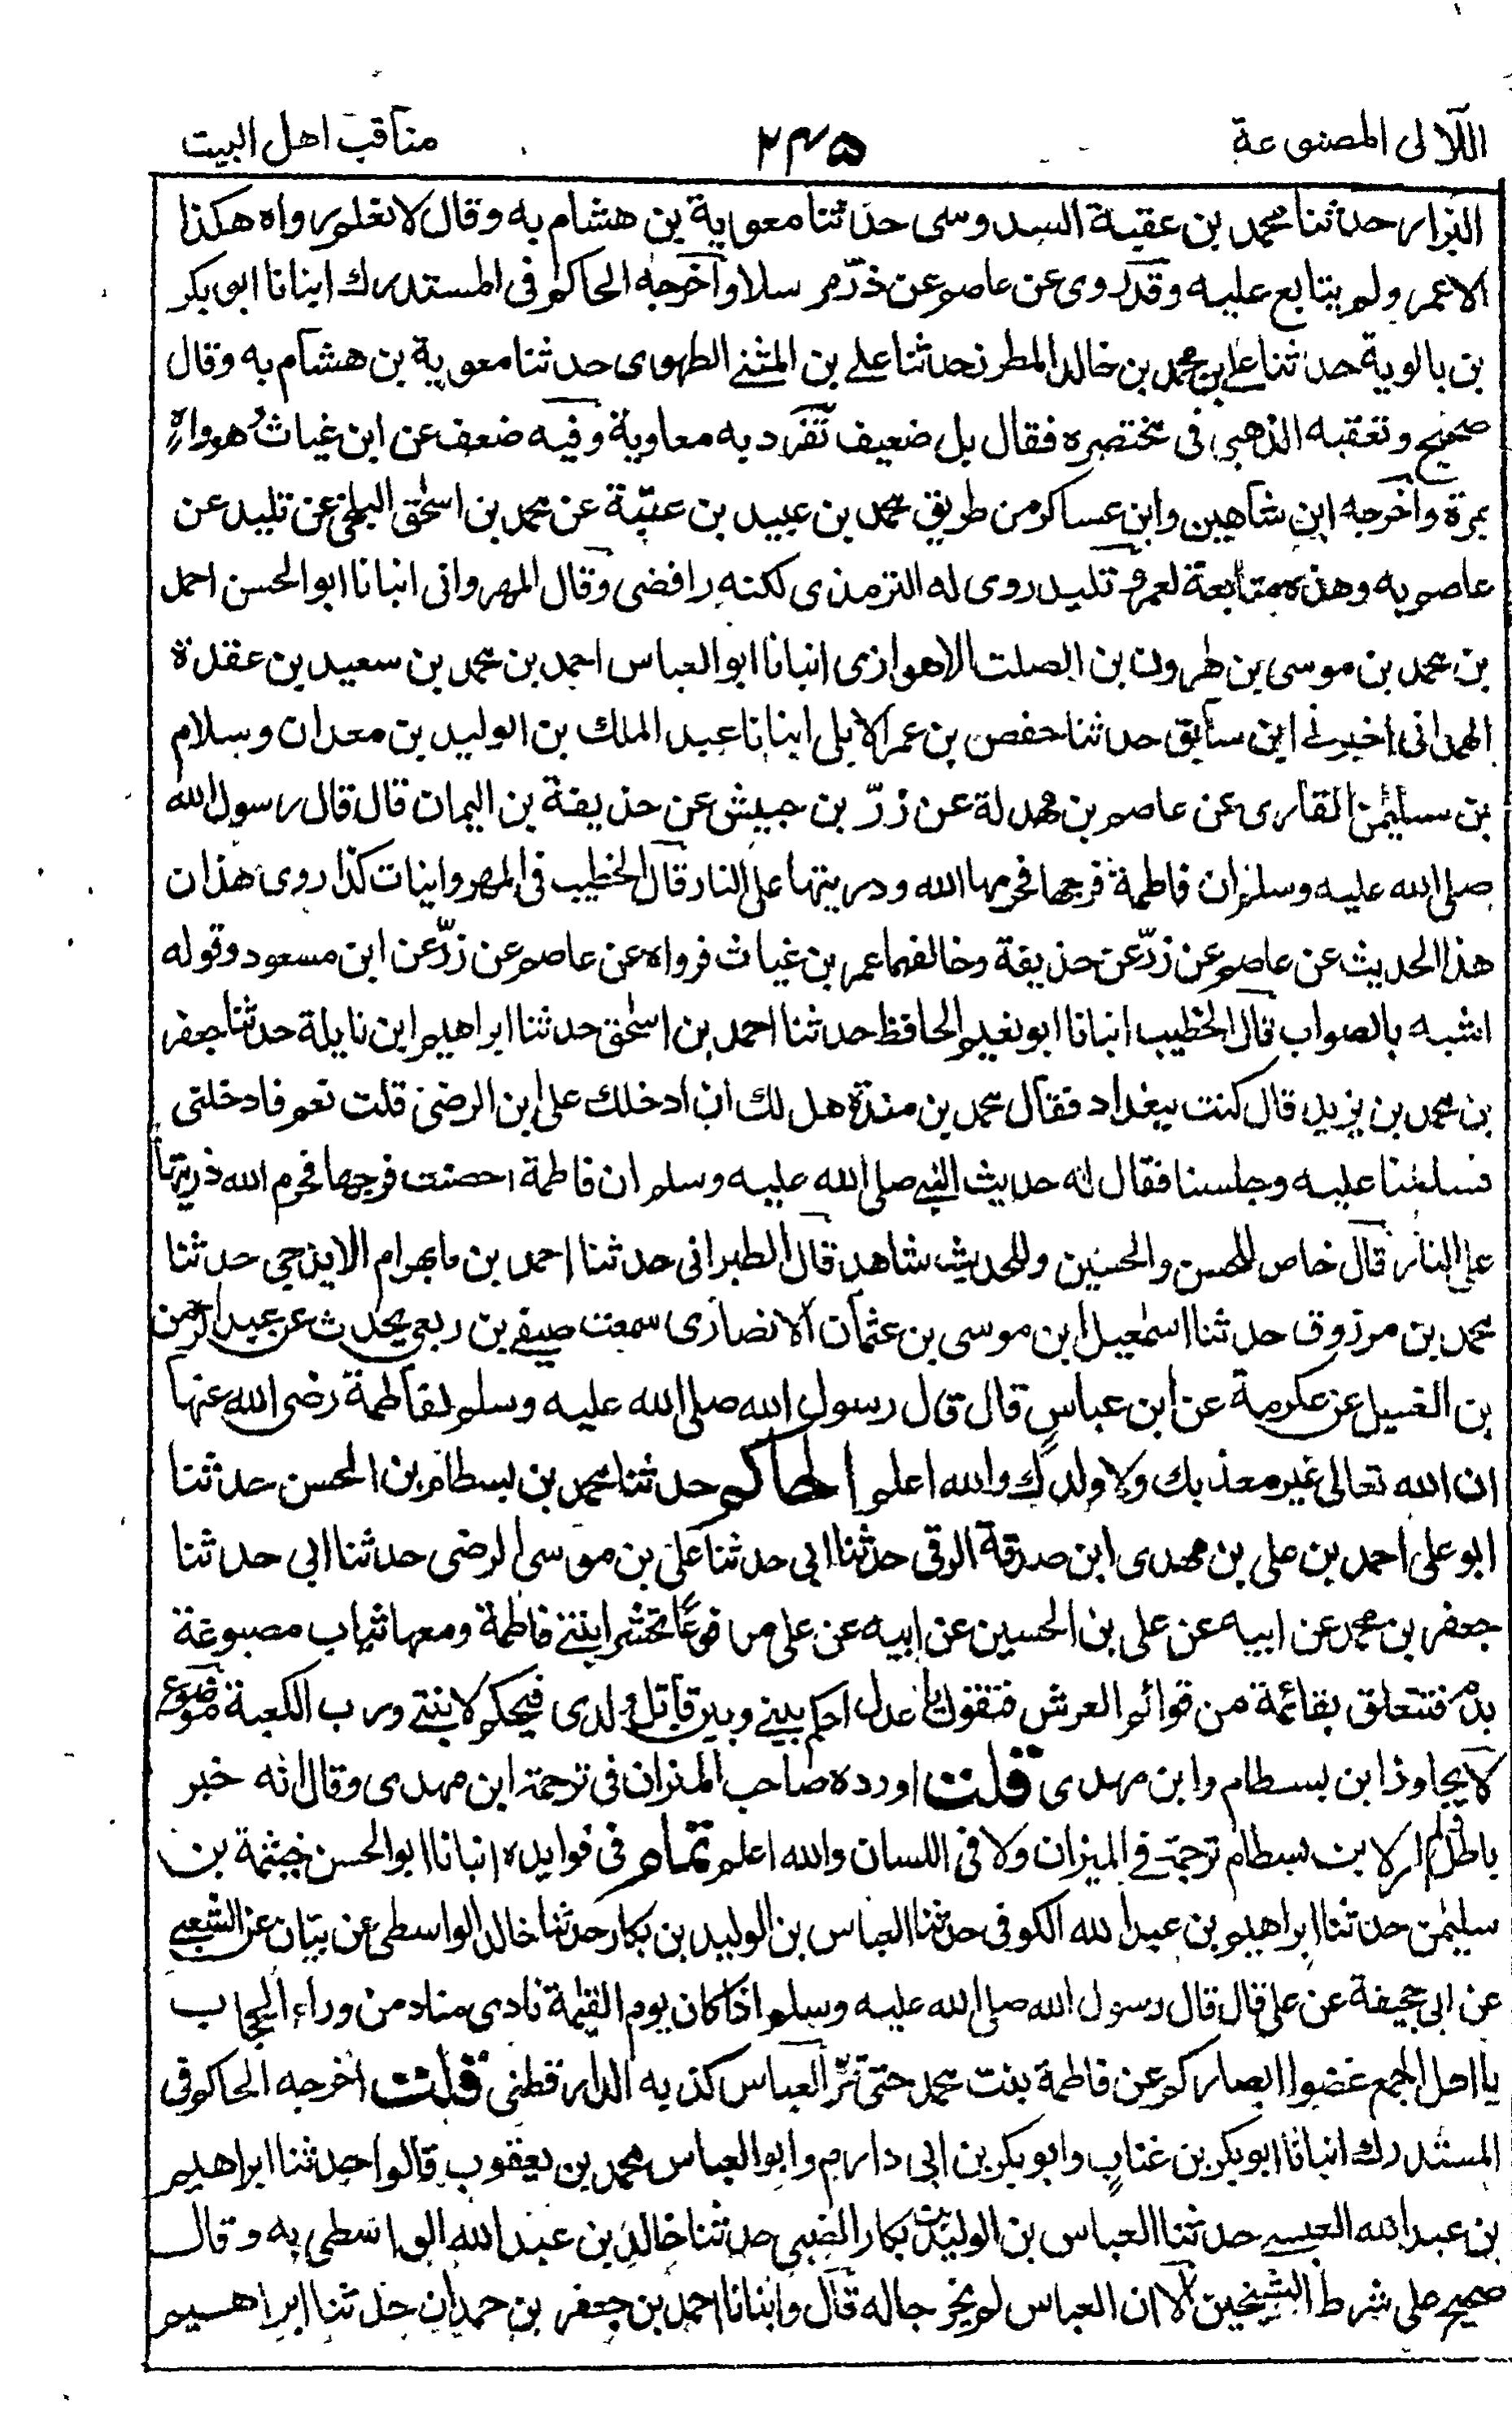 اللآلى المصنوعة
۲۴۵
مناقب اهل البيت
البزار حدثنا محمد بن عقبة السدوسى حدثنا معوية بن هشام به وقال لا نعلم رواه هكذا
الا عمر ولم يتابع عليه وقد روى عن عاصم عن ذر مرسلا واخرجه الحاكم فى المستدرك انبانا ابو بكر
بن بالوية حدثنا على بن محمد بن خالد المطرز حدثنا على بن المثنى الطهوى حدثنا معوية بن هشام به وقال
صحيح وتعقبه الذهبى فى مختصره فقال بل ضعيف تفرد به معاوية وفيه ضعف عن ابن غياث وهو واه
بمرة واخرجه ابن شاهين وابن عساكر من طريق محمد بن عبيد بن عتبة عن محمد بن اسحٰق البلخى عن تليد عن
عاصم به وهذه متابعة لعمر و تليد روى له الترمذى لكنه رافضى وقال المهروانى انبانا ابو الحسن احمد
بن محمد بن موسى بن هٰرون بن الصلت الاهوازى انبانا ابو العباس احمد بن محمد بن سعيد بن عقدة
الهمدانى اخبرنى ابن سابق حدثنا حفص بن عمر الابلى انبانا عبد الملك بن الوليد بن معدان وسلام
بن سليمٰن القارى عن عاصم بن بهدلة عن زرّ بن حبيش عن حذيفة بن اليمان قال قال رسول الله
صلى الله عليه وسلم ان فاطمة فرجها فحرمها الله وذريتها على النار قال الخطيب فى المهروانيات كذا روى هذان
هذا الحديث عن عاصم عن زرّ عن حذيفة وخالفهما عمر بن غياث فرواه عن عاصم عن زرّ عن ابن مسعود وقوله
اشبه بالصواب قال الخطيب انبانا ابو نعيم الحافظ حدثنا احمد بن اسحٰق حدثنا ابراهيم ابن نايلة حدثنا جعفر
بن محمد بن يزيد قال كنت ببغداد فقال محمد بن مندة هل لك ان ادخلك على ابن الرضى قلت نعم فادخلنى
فسلمنا عليه وجلسنا فقال له حديث النبى صلى الله عليه وسلم ان فاطمة احصنت فرجها فحرم الله ذريتها
على النار قال خاص للحسن والحسين وللحديث شاهد قال الطبرانى حدثنا احمد بن مابهرام الايذجى حدثنا
محمد بن مرزوق حدثنا اسمٰعيل ابن موسى بن عثمان الانصارى سمعت صيفى بن ربعى يحدث عن عبد الرحمن
بن الغسيل عن عكرمة عن ابن عباس قال قال رسول الله صلى الله عليه وسلم لفاطمة رضى الله عنها
ان الله تعالى غير معذبك ولا ولدك والله اعلم الحاكم حدثنا محمد بن بسطام بن الحسن حدثنا
ابو على احمد بن على بن مهدى ابن صدقة الرقى حدثنا ابى حدثنا على بن موسى الرضى حدثنا ابى حدثنا
جعفر بن محمد عن ابيه عن على بن الحسين عن ابيه عن على مرفوعًا تحشر ابنتى فاطمة ومعها ثياب مصبوغة
بدم فتتعلق بقائمة من قوائم العرش فتقول يا عدل احكم بينى وبين قاتل ولدى فيحكم لابنتى ورب الكعبة موضوع
لا يجاوز ابن بسطام وابن مهدى قلت اورده صاحب الميزان فى ترجمة ابن مهدى وقال انه خبر
باطل ولم ار لابن بسطام ترجمة فى الميزان ولا فى اللسان والله اعلم تمام فى فوايده انبانا ابو الحسن خيثمة بن
سليمٰن حدثنا ابراهيم بن عبد الله الكوفى حدثنا العباس بن الوليد بن بكار حدثنا خالد الواسطى عن بيان عن الشعبى
عن ابى جحيفة عن على قال قال رسول الله صلى الله عليه وسلم اذا كان يوم القيٰمة نادى مناد من وراء الحجاب
يا اهل الجمع غضوا ابصاركم عن فاطمة بنت محمد حتى تمرّ العباس كذبه الدارقطنى قلت اخرجه الحاكم فى
المستدرك انبانا ابو بكر بن عتاب وابو بكر بن ابى دارم وابو العباس محمد بن يعقوب قالوا حدثنا ابراهيم
بن عبد الله العبسى حدثنا العباس بن الوليد بن بكار الضبى حدثنا خالد بن عبد الله الواسطى به وقال
صحيح على شرط الشيخين الا ان العباس لم يخرجا له قال وانبانا احمد بن جعفر بن حمدان حدثنا ابراهيم